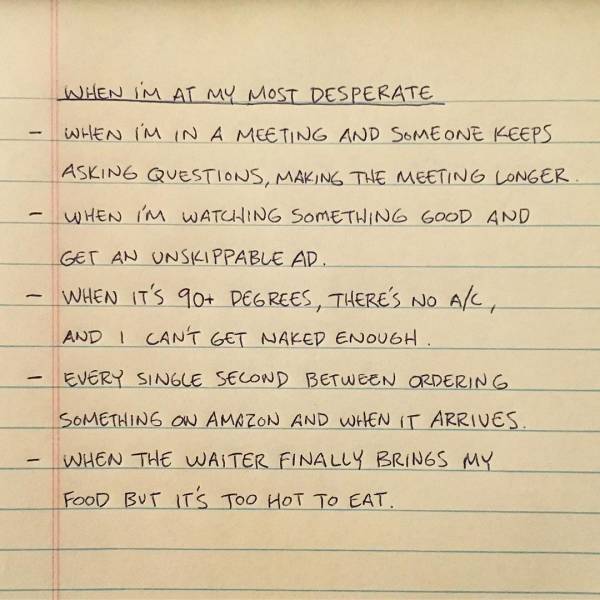 WHEN I'M AT MY MOST DESPERATE
- WHEN I'M IN A MEETING AND SOMEONE KEEPS
ASKING QUESTIONS, MAKING THE MEETING LONGER.
- WHEN I'M WATCHING SOMETHING GOOD AND
GET AN UNSKIPPABLE AD.
- WHEN IT'S 90+ DEGREES, THERE'S NO A/C,
AND I CAN'T GET NAKED ENOUGH.
- EVERY SINGLE SECOND BETWEEN ORDERING
SOMETHING ON AMAZON AND WHEN IT ARRIVES.
- WHEN THE WAITER FINALLY BRINGS MY
FOOD BUT IT'S TOO HOT TO EAT.